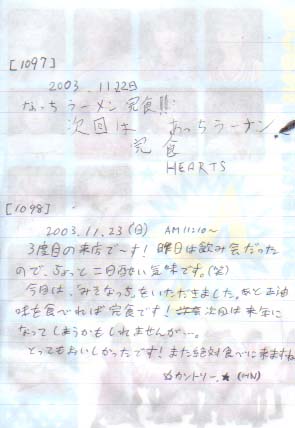 [1097]
2003.11.22日
なっちラーメン完食!!
次回は あっちラーメン
完食
HEARTS
[1098]
2003.11.23(日) AM11:10~
3度目の来店で~す!昨日は飲み会だった
ので、ちょっと二日酔い気味です。(笑)
今日は、「みそなっち」をいただきました。あと正油
味を食べれば完食です!次回は来年に
なってしまうかもしれませんが…。
とってもおいしかったです!また絶対食べに来ますね
☆カントリー.★(HN)